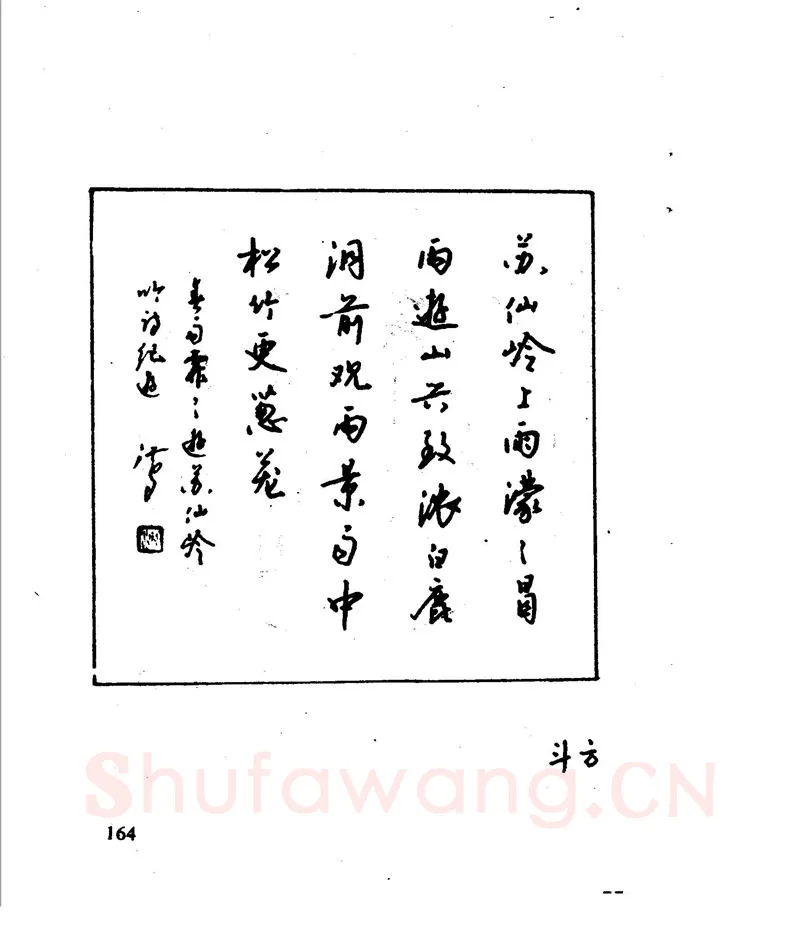 苏仙岭上雨濛々冒
雨遊山兴致浓白鹿
洞前观雨景雨中
松竹更葱茏
春雨霏々遊苏仙岭
吟诗纪遊
斗方
Shufawang.CN
164